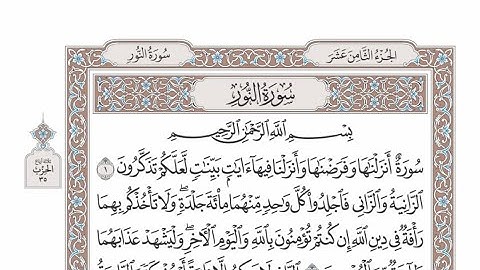 سُورَةُ النُّورِ
الجُزْءُ الثَّامِنَ عَشَرَ
سُورَةُ النُّورِ
بِسْمِ ٱللَّهِ ٱلرَّحْمَٰنِ ٱلرَّحِيمِ
سُورَةٌ أَنزَلْنَٰهَا وَفَرَضْنَٰهَا وَأَنزَلْنَا فِيهَآ ءَايَٰتٍۭ بَيِّنَٰتٍ لَّعَلَّكُمْ تَذَكَّرُونَ ١
ٱلزَّانِيَةُ وَٱلزَّانِى فَٱجْلِدُوا۟ كُلَّ وَٰحِدٍ مِّنْهُمَا مِا۟ئَةَ جَلْدَةٍ ۖ وَلَا تَأْخُذْكُم بِهِمَا
رَأْفَةٌ فِى دِينِ ٱللَّهِ إِن كُنتُمْ تُؤْمِنُونَ بِٱللَّهِ وَٱلْيَوْمِ ٱلْءَاخِرِ ۖ وَلْيَشْهَدْ عَذَابَهُمَا
الحِزْبُ
٣٥